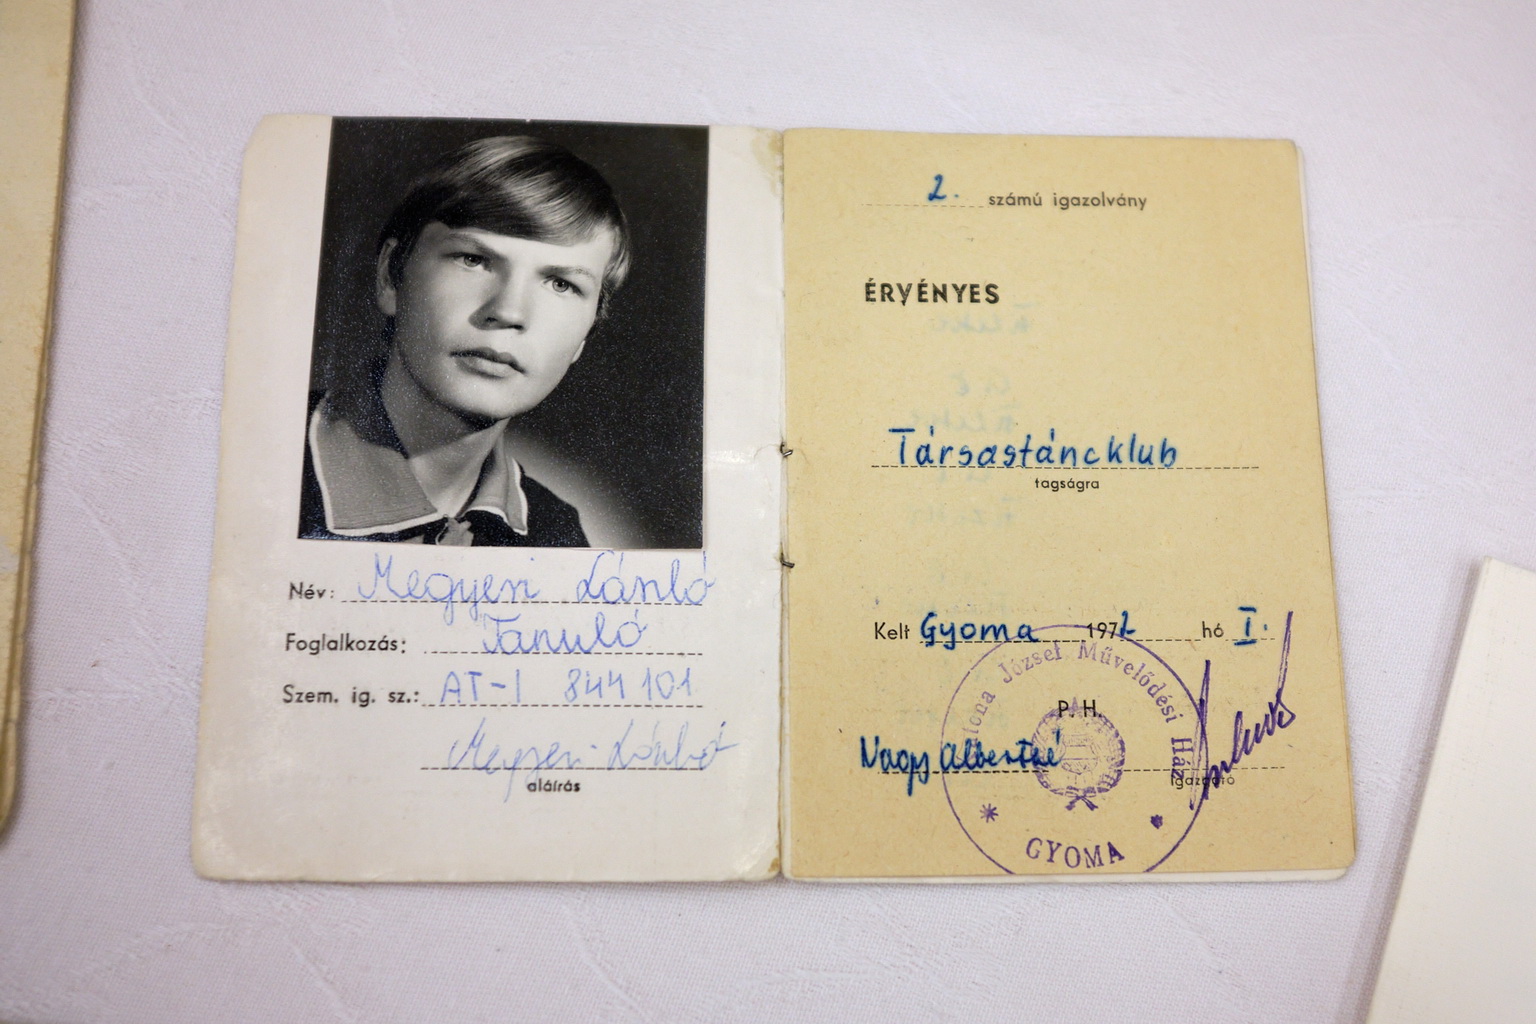 Név: Megyeri László
Foglalkozás: Tanuló
Szem. ig. sz.: AT-I 844 101
Megyeri László
aláírás
2. számú igazolvány
ÉRVÉNYES
Társastáncklub
tagságra
Kelt Gyoma 1972 hó I.
P. H.
Nagy Albertné
igazgató
József Művelődési Ház
GYOMA